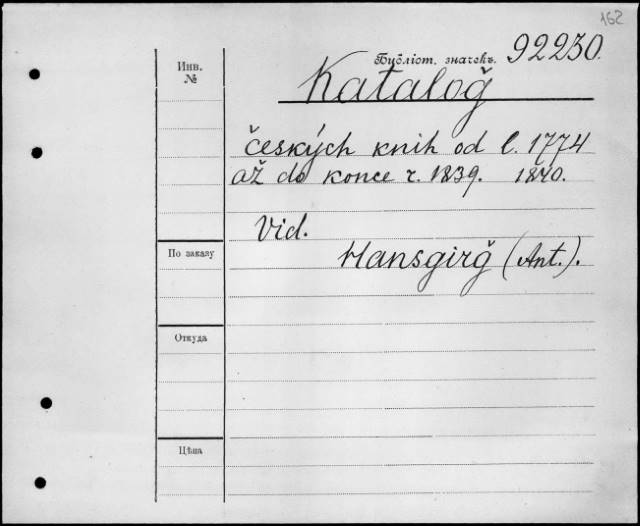 162
Библіот. значекъ. 92230.
Инв. №
Kataloğ
českých knih od l. 1774
až do konce r. 1839. 1840.
Vid.
Hansgirğ (Ant.).
По заказу
Откуда
Цѣна